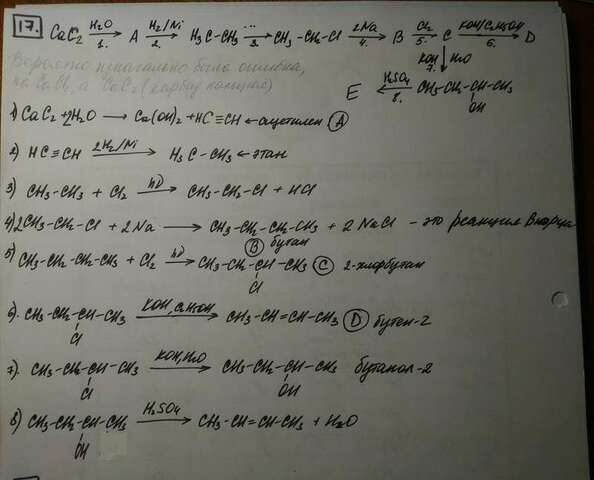 17. CaC₂ —H₂O/1.→ A —H₂/Ni/2.→ H₃C-CH₃ —.../3.→ CH₃-CH₂-Cl —2Na/4.→ B —Cl₂/5.→ C —KOH/C₂H₅OH/6.→ D
↓ KOH 7. H₂O
Вероятно изначально была ошибка,
не CaCl₂, а CaC₂ (карбид кальция)
E ←H₂SO₄/8.— CH₃-CH₂-CH-CH₃
OH
1) CaC₂ + 2H₂O → Ca(OH)₂ + HC≡CH ← ацетилен (A)
2) HC≡CH —2H₂/Ni→ H₃C-CH₃ ← этан
3) CH₃-CH₃ + Cl₂ —hν→ CH₃-CH₂-Cl + HCl
4) 2CH₃-CH₂-Cl + 2Na → CH₃-CH₂-CH₂-CH₃ + 2NaCl - это реакция Вюрца
(B) бутан
5) CH₃-CH₂-CH₂-CH₃ + Cl₂ —hν→ CH₃-CH₂-CH-CH₃ (C) 2-хлорбутан
Cl
6). CH₃-CH₂-CH-CH₃ —KOH, C₂H₅OH→ CH₃-CH=CH-CH₃ (D) бутен-2
Cl
7). CH₃-CH₂-CH-CH₃ —KOH, H₂O→ CH₃-CH₂-CH-CH₃ бутанол-2
Cl OH
8) CH₃-CH₂-CH-CH₃ —H₂SO₄→ CH₃-CH=CH-CH₃ + H₂O
OH